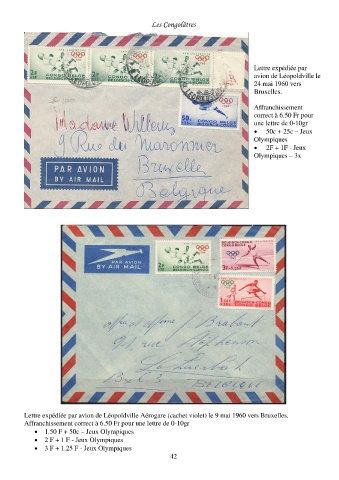 Les Congolâtres
Lettre expédiée par
avion de Léopoldville le
24 mai 1960 vers
Bruxelles.
Affranchissement
correct à 6.50 Fr pour
une lettre de 0-10gr
• 50c + 25c – Jeux
Olympiques
• 2F + 1F - Jeux
Olympiques – 3x
CONGO BELGE
CONGO BELGE
CONGO BELGE
50c
Madame Willems
9 Rue des Maronnier
Bruxelle
Belgique
PAR AVION
BY AIR MAIL
PAR AVION
BY AIR MAIL
CONGO BELGE
Brabant
rue Stephenson
Lettre expédiée par avion de Léopoldville Aérogare (cachet violet) le 9 mai 1960 vers Bruxelles.
Affranchissement correct à 6.50 Fr pour une lettre de 0-10gr
• 1.50 F + 50c – Jeux Olympiques
• 2 F + 1 F - Jeux Olympiques
• 3 F + 1.25 F - Jeux Olympiques
42